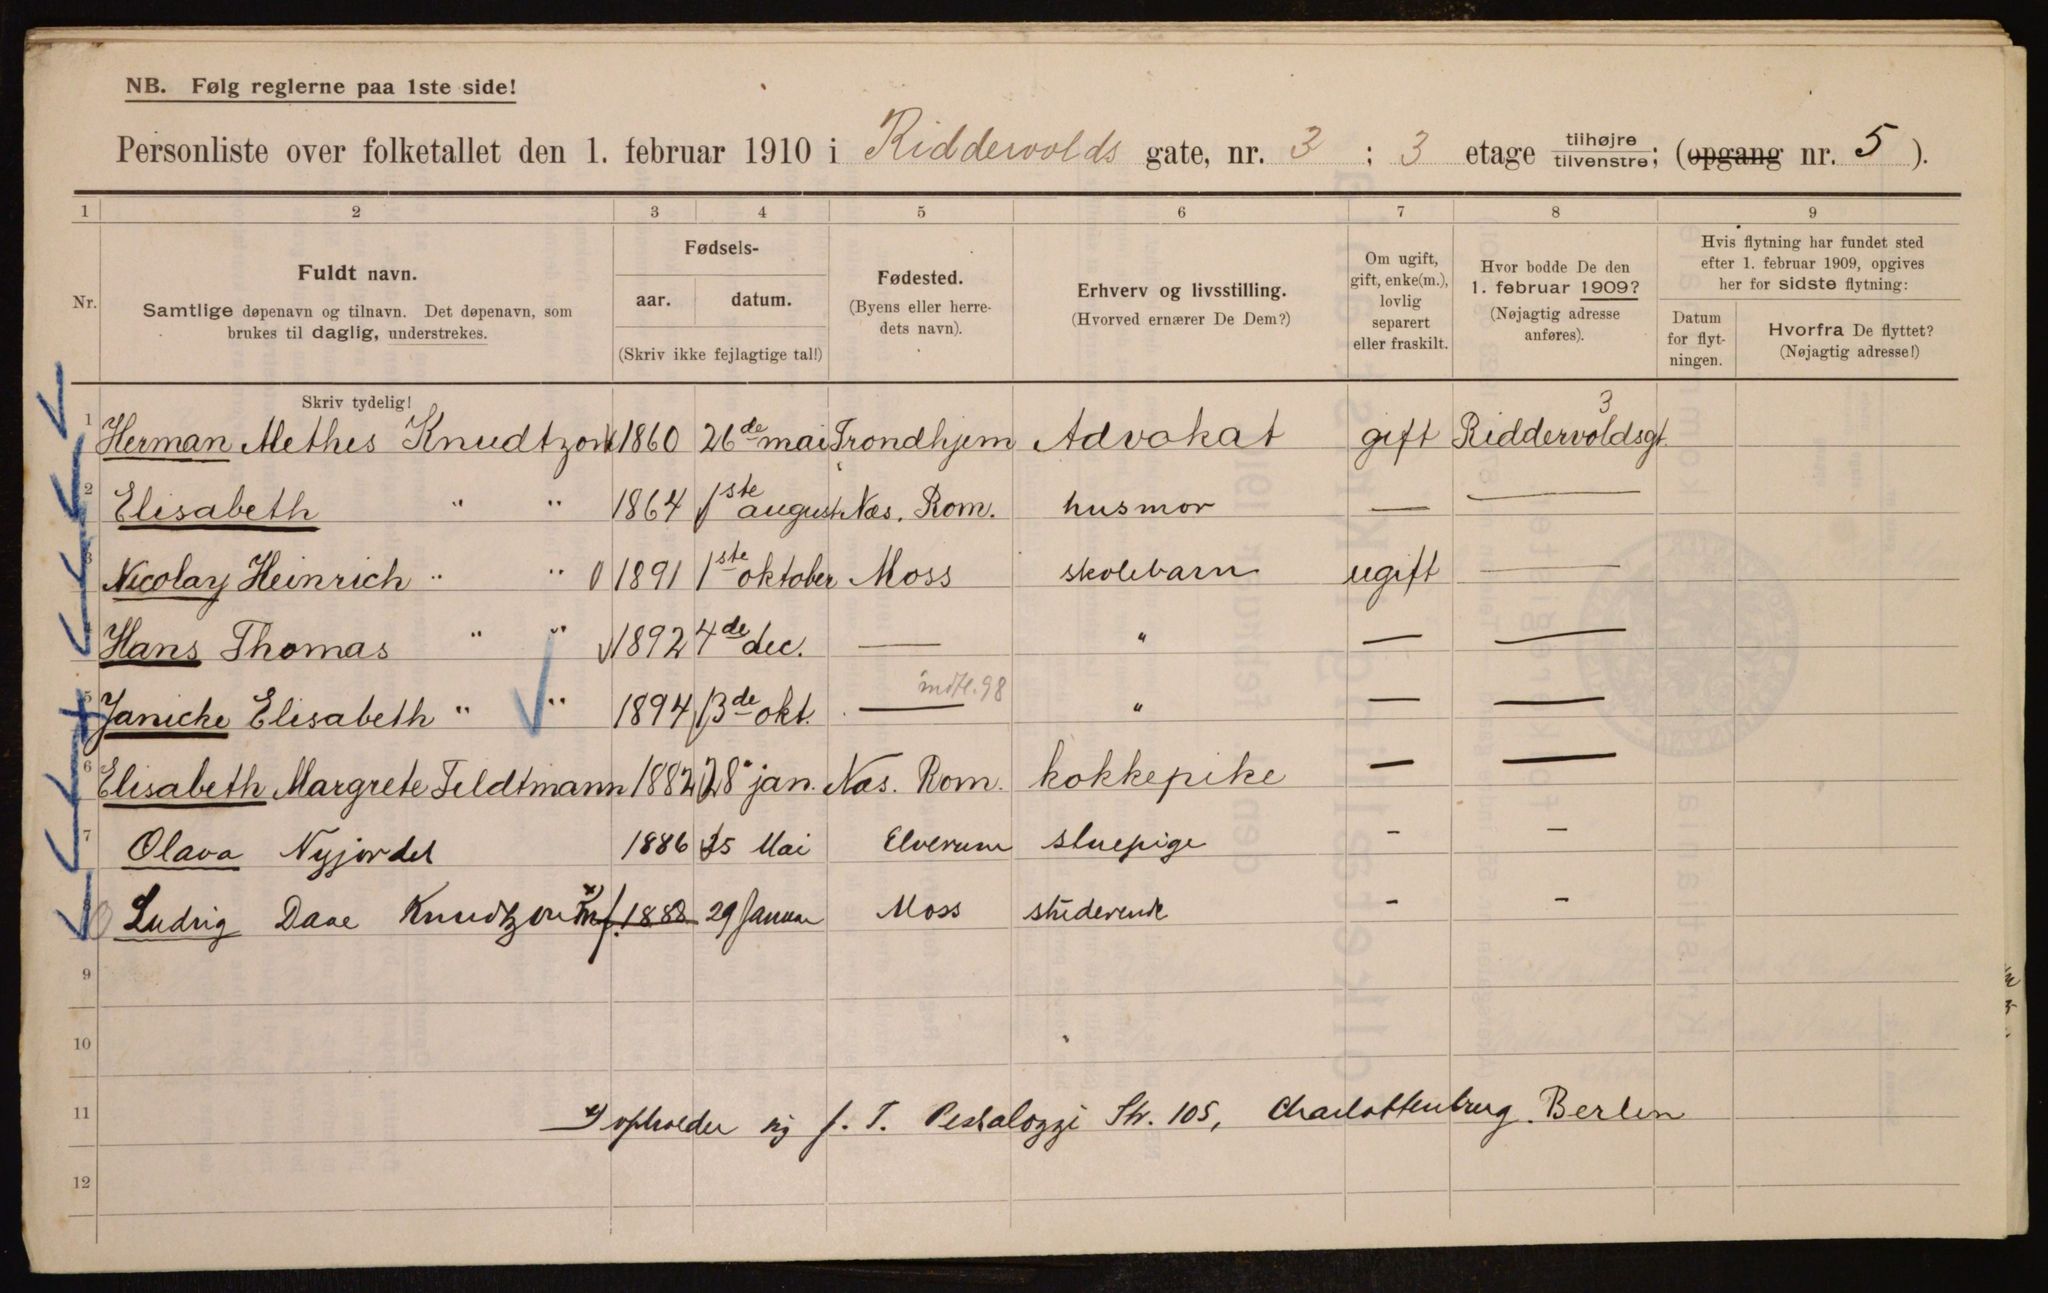 NB. Følg reglerne paa 1ste side!
Personliste over folketallet den 1. februar 1910 i Riddervolds gate, nr. 3 ; 3 etage tilhøjre/tilvenstre; (opgang nr. 5 ).
1 2 3 4 5 6 7 8 9
Nr.
Fuldt navn.
Samtlige døpenavn og tilnavn. Det døpenavn, som
brukes til daglig, understrekes.
Skriv tydelig!
Fødsels-
aar. datum.
(Skriv ikke fejlagtige tal!)
Fødested.
(Byens eller herre-
dets navn).
Erhverv og livsstilling.
(Hvorved ernærer De Dem?)
Om ugift,
gift, enke(m.),
lovlig
separert
eller fraskilt.
Hvor bodde De den
1. februar 1909?
(Nøjagtig adresse
anføres).
Hvis flytning har fundet sted
efter 1. februar 1909, opgives
her for sidste flytning:
Datum
for flyt-
ningen.
Hvorfra De flyttet?
(Nøjagtig adresse!)
1 Herman Methes Knudtzon 1860 26de mai Trondhjem Advokat gift Riddervoldsgt. 3
2 Elisabeth " " 1864 1ste august Næs. Rom. husmor — —
3 Nicolay Heinrich " " 1891 1ste oktober Moss skolebarn ugift —
4 Hans Thomas " " 1892 4de dec. — " — —
5 Janicke Elisabeth " " 1894 13de okt. — " — —
6 Elisabeth Margrete Feldtmann 1882 28 jan. Næs. Rom. kokkepike — —
7 Olava Nyjordet 1886 25 Mai Elverum stuepige - -
8 Ludvig Daae Knudtzon x) m f. 1888 29 Januar Moss studerende - -
9
10
11 x) opholder sig f. T. Pestalozzi Str. 105, Charlottenburg. Berlin
12